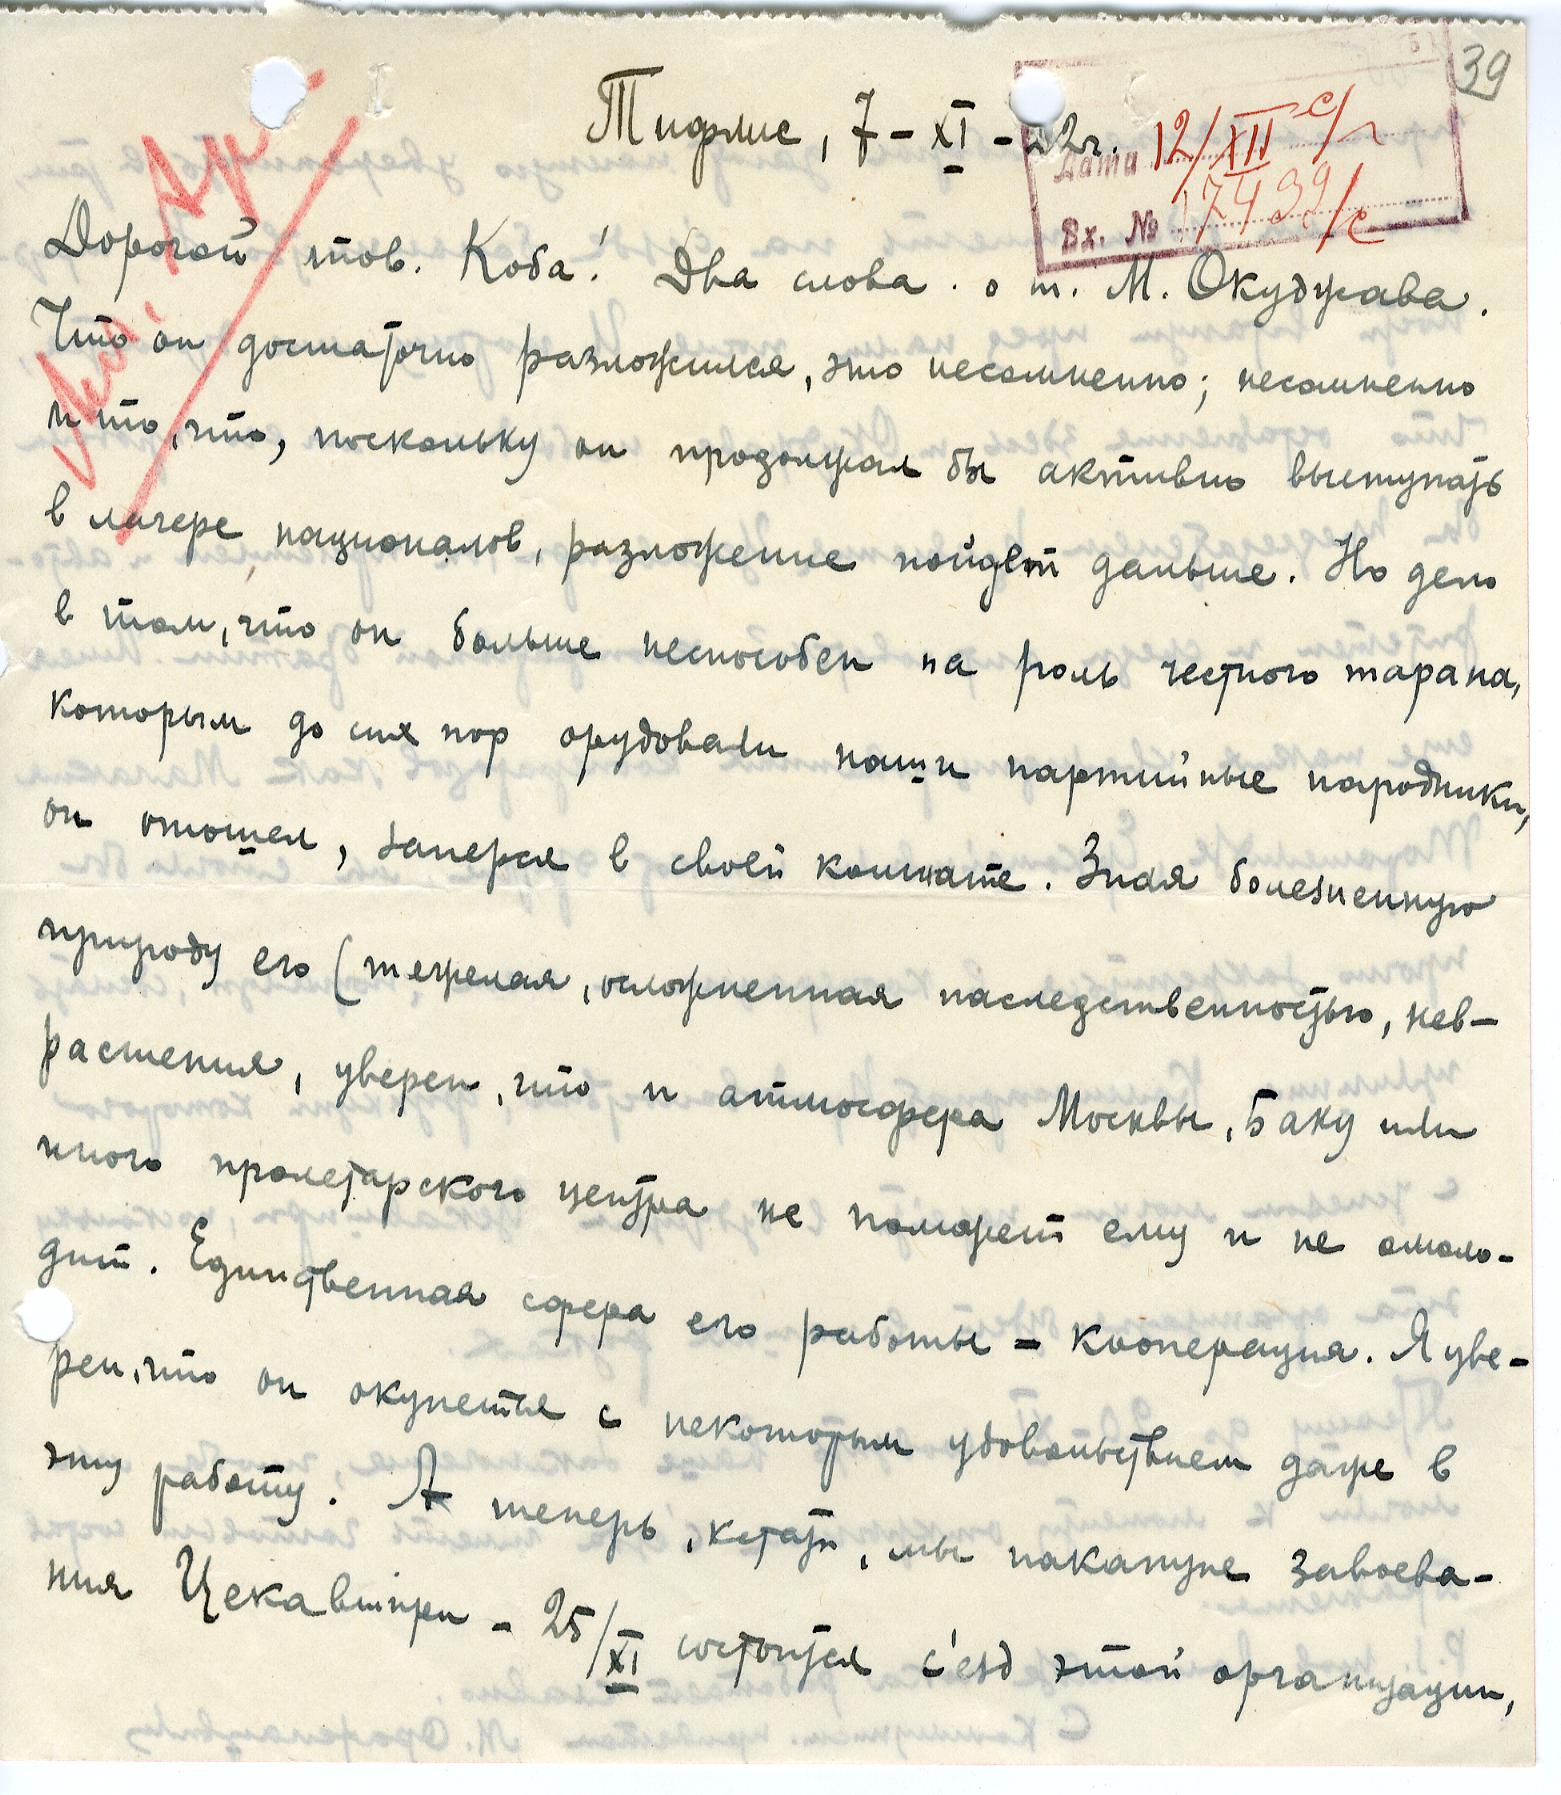 39
Тифлис, 7-XI-22г.
Дата 12/XII с/г
Вх. № 17439/с
Арх.
Дорогой тов. Коба! Два слова о т. М. Окуджава.
Что он достаточно разложился, это несомненно; несомненно
и то, что, поскольку он продолжал бы активно выступать
в лагере националов, разложение пойдет дальше. Но дело
в том, что он больше неспособен на роль честного тарана,
которым до сих пор орудовали наши партийные народники,
он отошел, заперся в своей комнате. Зная болезненную
природу его (тяжелая, осложненная наследственностью, нев-
растения, уверен, что и атмосфера Москвы, Баку или
иного пролетарского центра не поможет ему и не омоло-
дит. Единственная сфера его работы - кооперация. Я уве-
рен, что он окунется с некоторым удовольствием даже в
эту работу. А теперь, кстати, мы накануне завоева-
ния Цекавшири - 25/XI состоится с'езд этой организации,